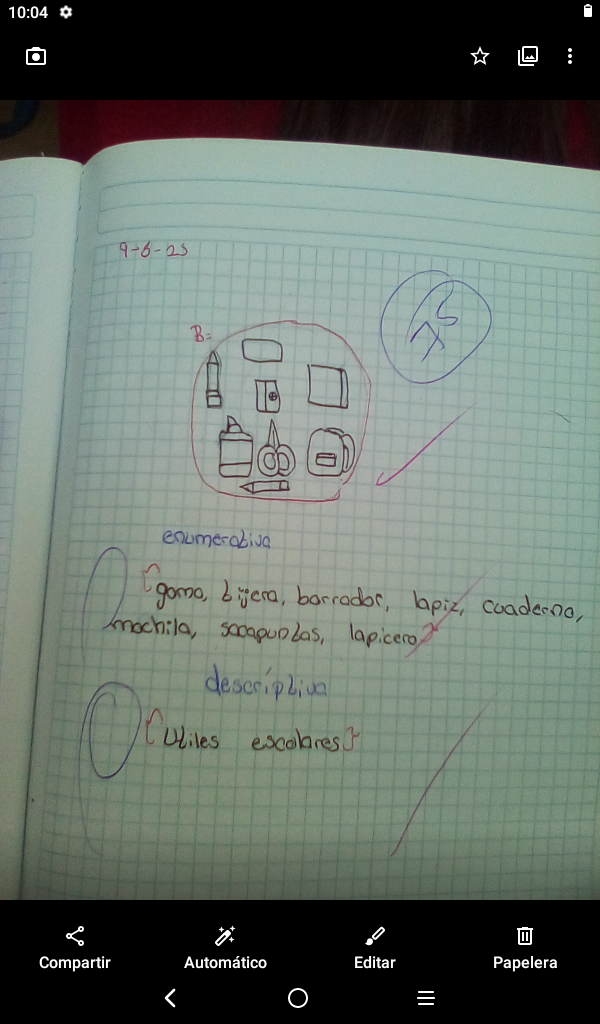 10:04
9-6-25
B=
enumerativa
{goma, tijera, borrador, lapiz, cuaderno,
mochila, sacapuntas, lapicero}
descríptiva
{Utiles escolares}
Compartir
Automático
Editar
Papelera